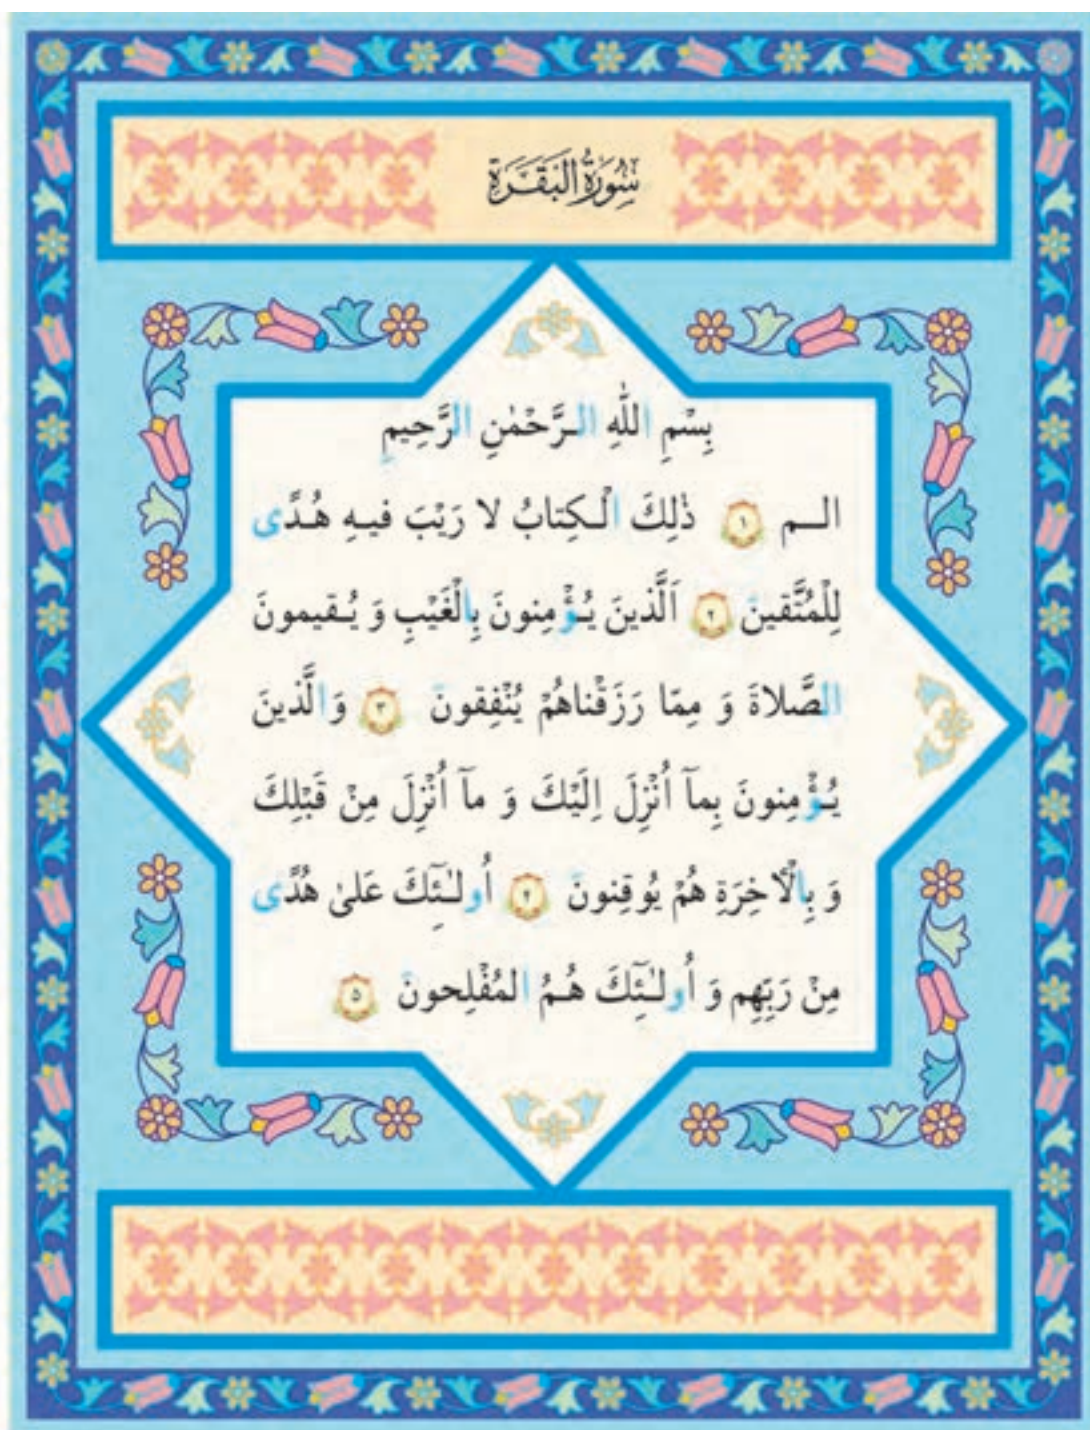 سُورَةُ الْبَقَرَةِ
بِسْمِ اللّٰهِ الرَّحْمٰنِ الرَّحِيمِ
الــم ١ ذٰلِكَ الْكِتابُ لا رَيْبَ فيهِ هُدًى
لِلْمُتَّقينَ ٢ اَلَّذينَ يُؤْمِنونَ بِالْغَيْبِ وَ يُقيمونَ
الصَّلاةَ وَ مِمّا رَزَقْناهُمْ يُنْفِقونَ ٣ وَالَّذينَ
يُؤْمِنونَ بِمآ اُنْزِلَ اِلَيْكَ وَ مآ اُنْزِلَ مِنْ قَبْلِكَ
وَ بِالْاٰخِرَةِ هُمْ يُوقِنونَ ۴ اُولـٰٓئِكَ عَلىٰ هُدًى
مِنْ رَبِّهِم وَ اُولـٰٓئِكَ هُمُ المُفْلِحونَ ۵